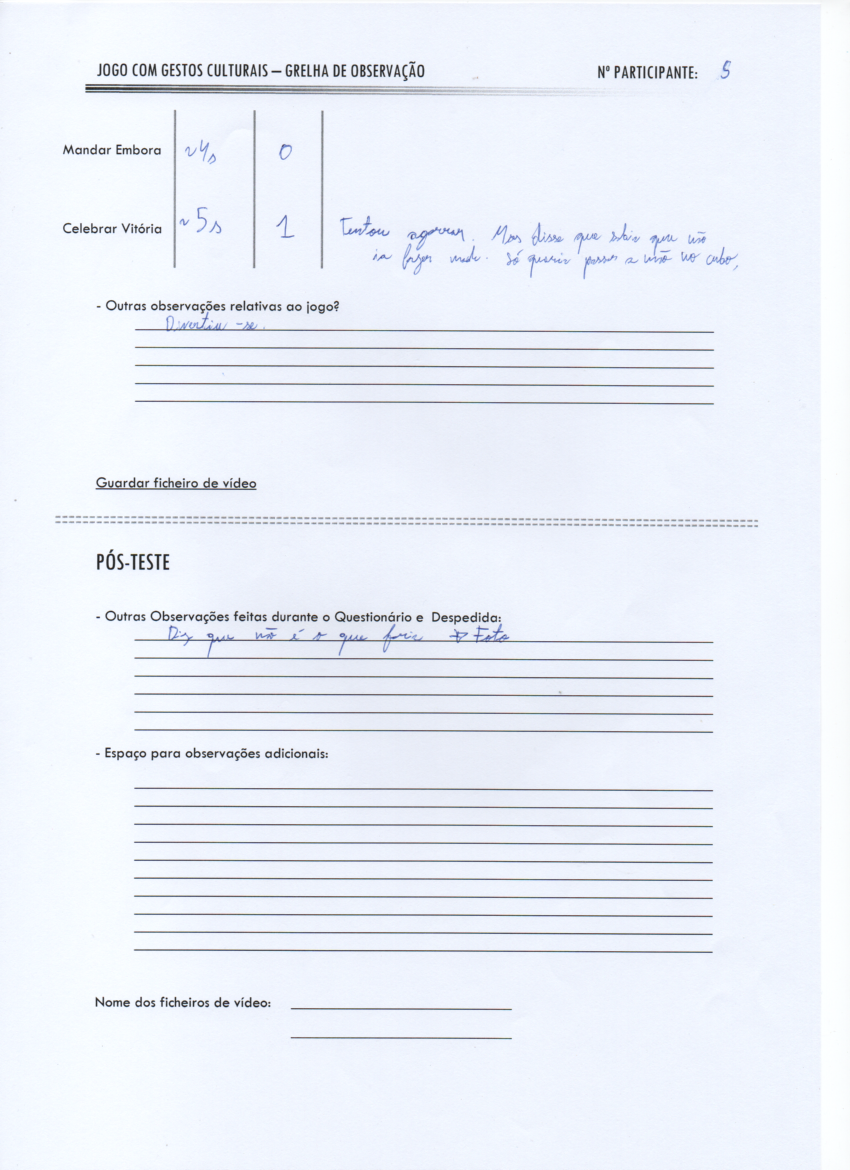 JOGO COM GESTOS CULTURAIS – GRELHA DE OBSERVAÇÃO Nº PARTICIPANTE: 5
Mandar Embora ~4s 0
Celebrar Vitória ~5s 1 Tentou agarrar. Mas disse que sabia que não
ia fazer nada. Só queria passar a mão no cubo,
- Outras observações relativas ao jogo?
Divertiu-se.
Guardar ficheiro de vídeo
PÓS-TESTE
- Outras Observações feitas durante o Questionário e Despedida:
Diz que não é o que faria → Foto
- Espaço para observações adicionais:
Nome dos ficheiros de vídeo: